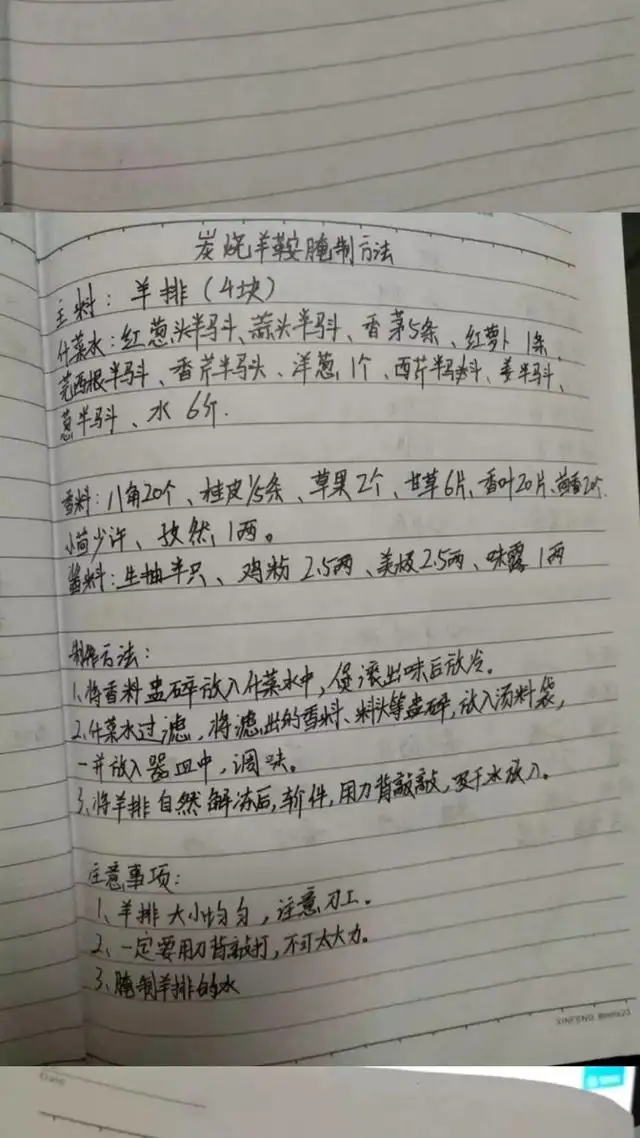 炭烧羊鞍腌制方法
主料：羊排（4块）
什菜水：红葱头半马斗、蒜头半马斗、香茅5条、红萝卜1条、
芫西根半马斗、香芹半马头、洋葱1个、西芹半马斗、姜半马斗、
葱半马斗、水6斤.
香料：八角20个、桂皮1/5条、草果2个、甘草6片、香叶20片、茴香20个
小茴少许、孜然1两。
酱料：生抽半只、鸡粉2.5两、美极2.5两、味露1两
制作方法：
1、将香料盅碎放入什菜水中，煲滚出味后放冷。
2、什菜水过滤，将滤出的香料、料头等盅碎，放入汤料袋，
一并放入器皿中，调味。
3、将羊排自然解冻后，斩件，用刀背敲敲，吸干水放入。
注意事项：
1、羊排大小均匀，注意刀工。
2、一定要用刀背敲打，不可太大力。
3、腌制羊排的水